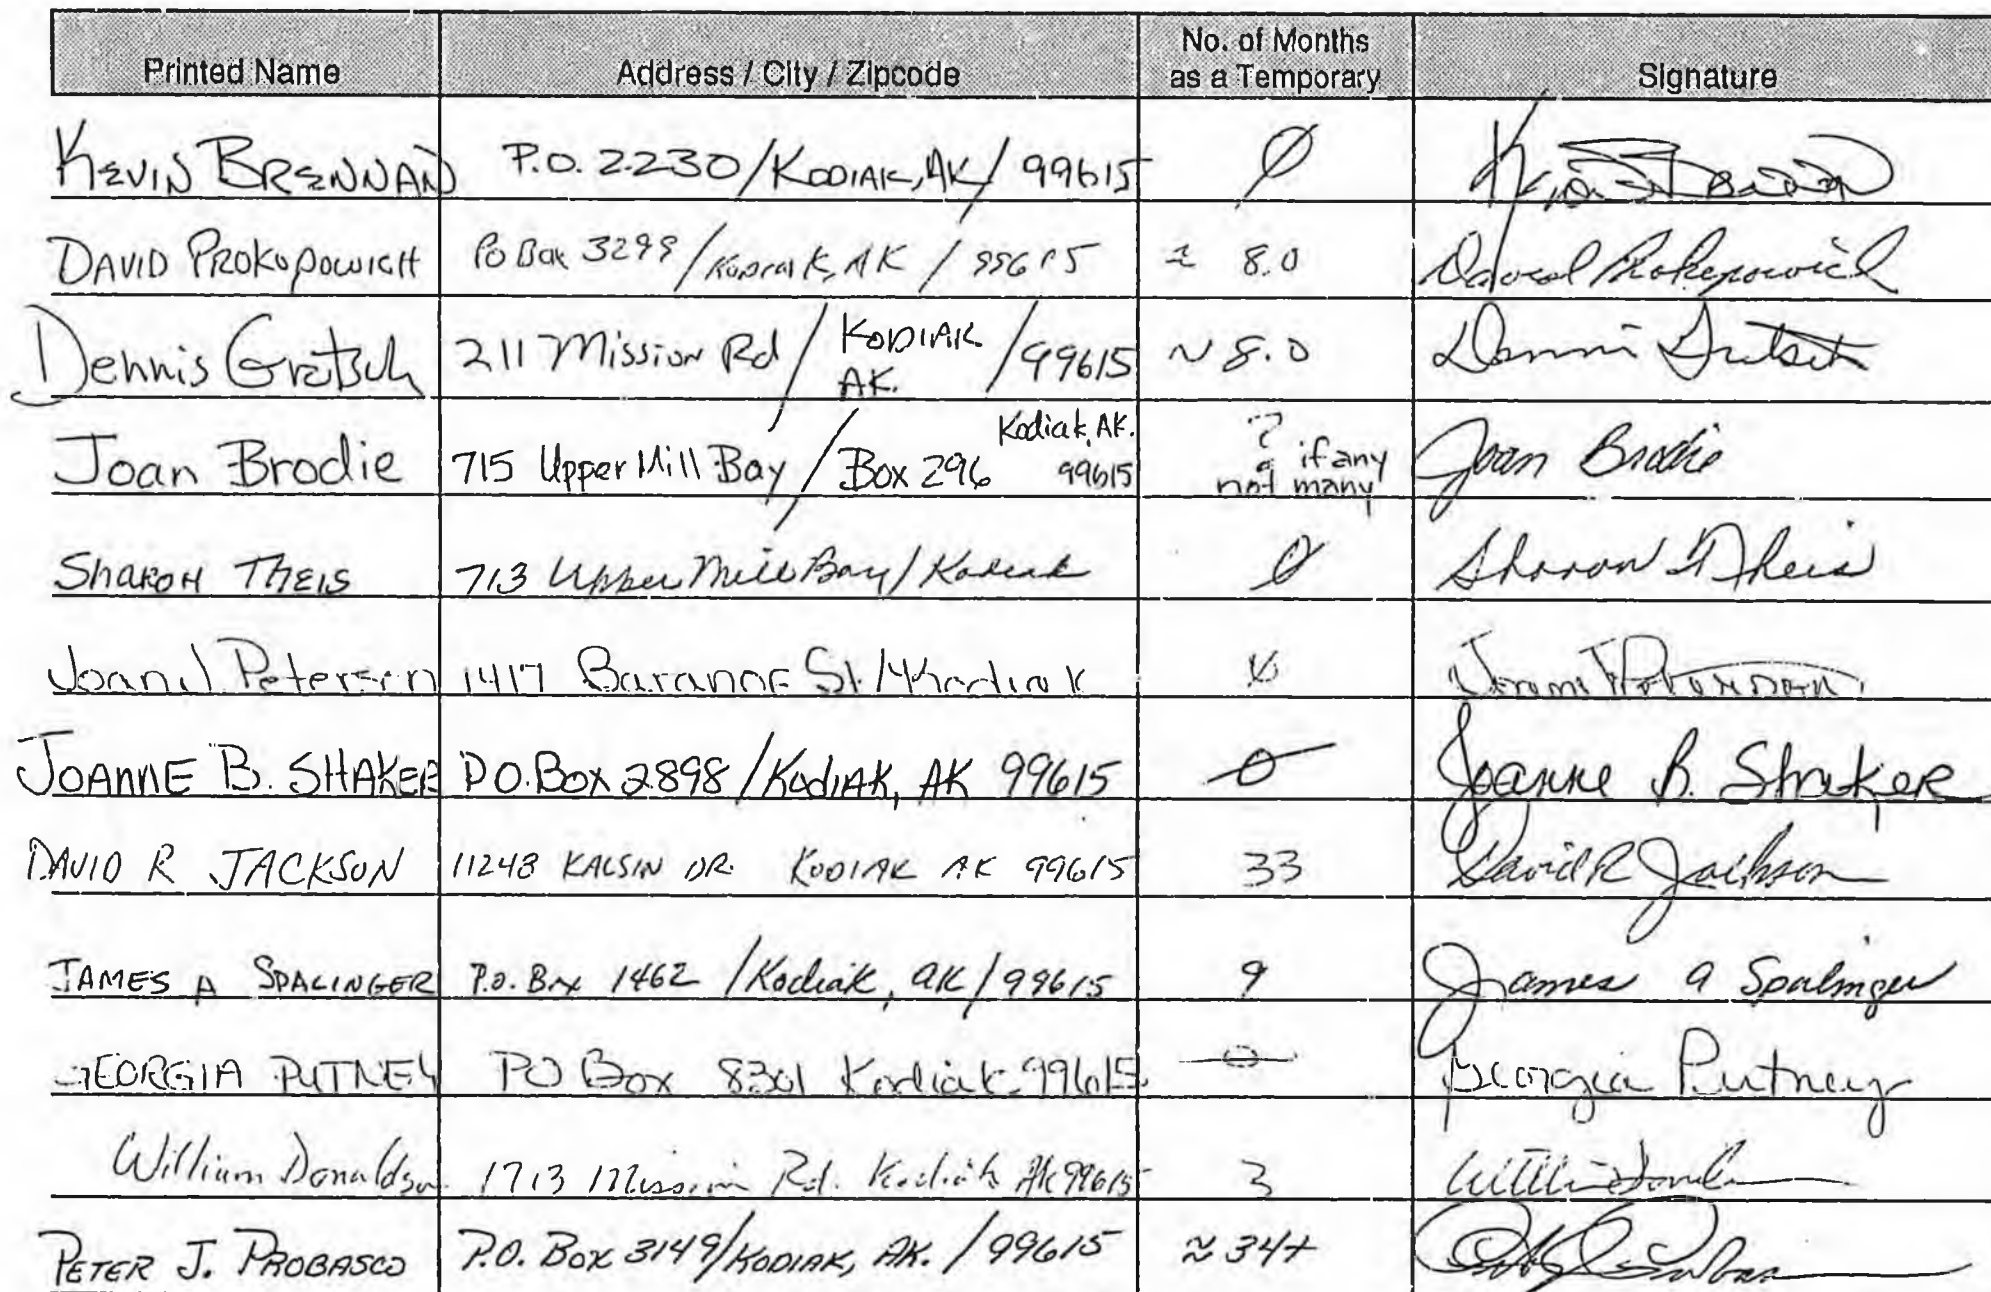 Printed Name Address / City / Zipcode No. of Months as a Temporary Signature
KEVIN BRENNAN P.O. 2230/KODIAK, AK/ 99615 Ø
DAVID PROKOPOWICH PO Box 3299/Kodiak, AK / 99615 ≈ 8.0 David Prokopowich
Dennis Gretsch 211 Mission Rd / KODIAK AK. /99615 ~ 8.0 Dennis Gretsch
Joan Brodie 715 Upper Mill Bay / Box 296 Kodiak, AK. 99615 ? if any not many Joan Brodie
SHARON THEIS 713 Upper Mill Bay / Kodiak Ø Sharon Theis
Joan J. Petersen 1417 Baranof St. / Kodiak
JOANNE B. SHAKER P.O. Box 2898 /Kodiak, AK 99615 0 Joanne B. Shaker
DAVID R JACKSON 11248 KALSIN DR. KODIAK AK 99615 33 David R Jackson
JAMES A SPALINGER P.O. Box 1462 /Kodiak, AK/99615 9 James A Spalinger
GEORGIA PUTNEY PO Box 8301 Kodiak 99615 0 Georgia Putney
William Donaldson 1713 Mission Rd. Kodiak AK 99615 3
PETER J. PROBASCO P.O. Box 3149/KODIAK, AK. / 99615 ≈ 34+